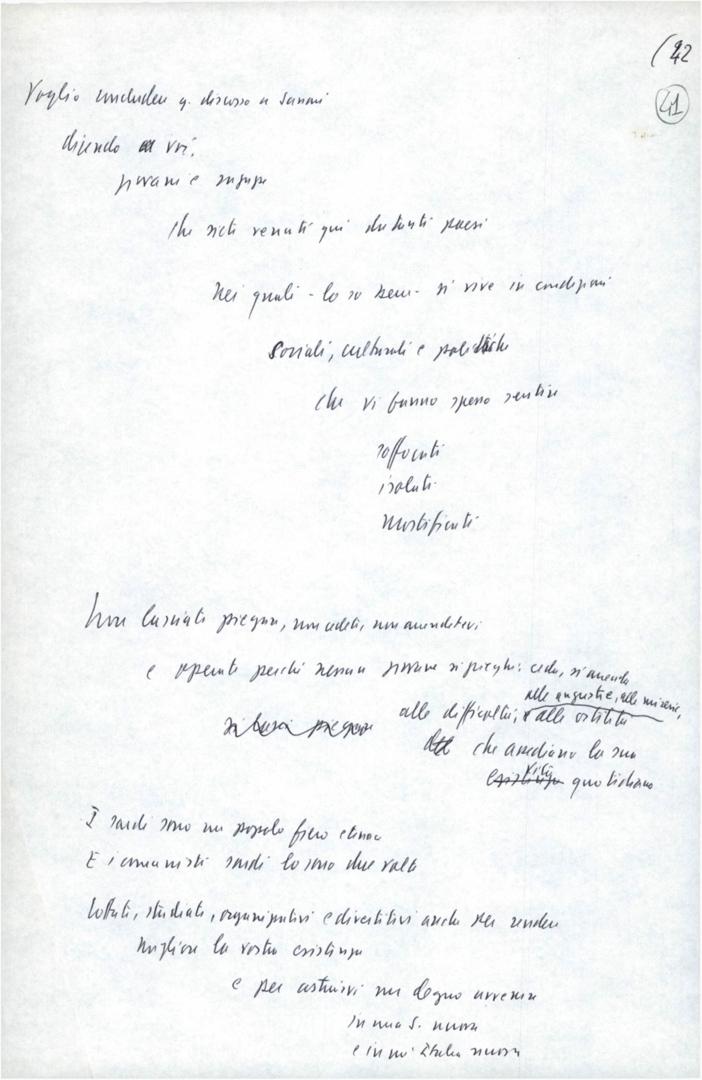 42
41
Voglio concludere q. discorso a Sassari
dicendo a voi,
giovani e ragazze
che siete venuti qui da tanti paesi
nei quali - lo so bene - si vive in condizioni
sociali, culturali e politiche
che vi fanno spesso sentire
soffocati
isolati
mortificati
Non lasciatevi piegare, non cedete, non arrendetevi
e operate perché nessun giovane si pieghi, ceda, si arrenda
alle angustie, alle miserie,
si lasci piegare alle difficoltà, alle ostilità
che assediano la sua
vita
esistenza quotidiana
I sardi sono un popolo fiero e tenace
E i comunisti sardi lo sono due volte
Lottate, studiate, organizzatevi e divertitevi anche per rendere
migliore la vostra esistenza
e per costruirvi un degno avvenire
in una S. nuova
e in un'Italia nuova